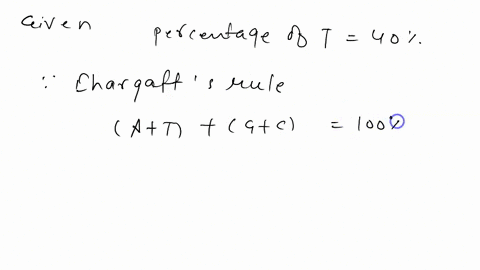 Given percentage of T = 40%.
∵ Chargaff's rule
(A+T) + (G+C) = 100%